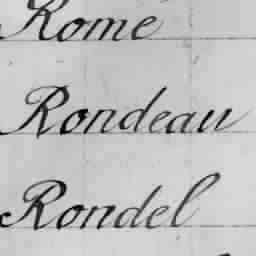 Rome
Rondeau
Rondel